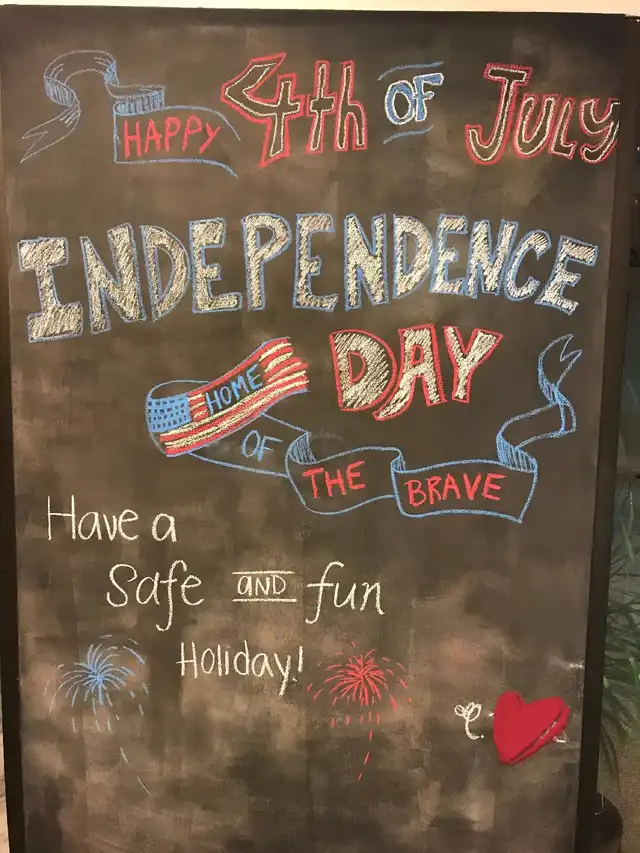 HAPPY 4th OF JULY
INDEPENDENCE
DAY
HOME
OF
THE BRAVE
Have a
Safe AND fun
Holiday!